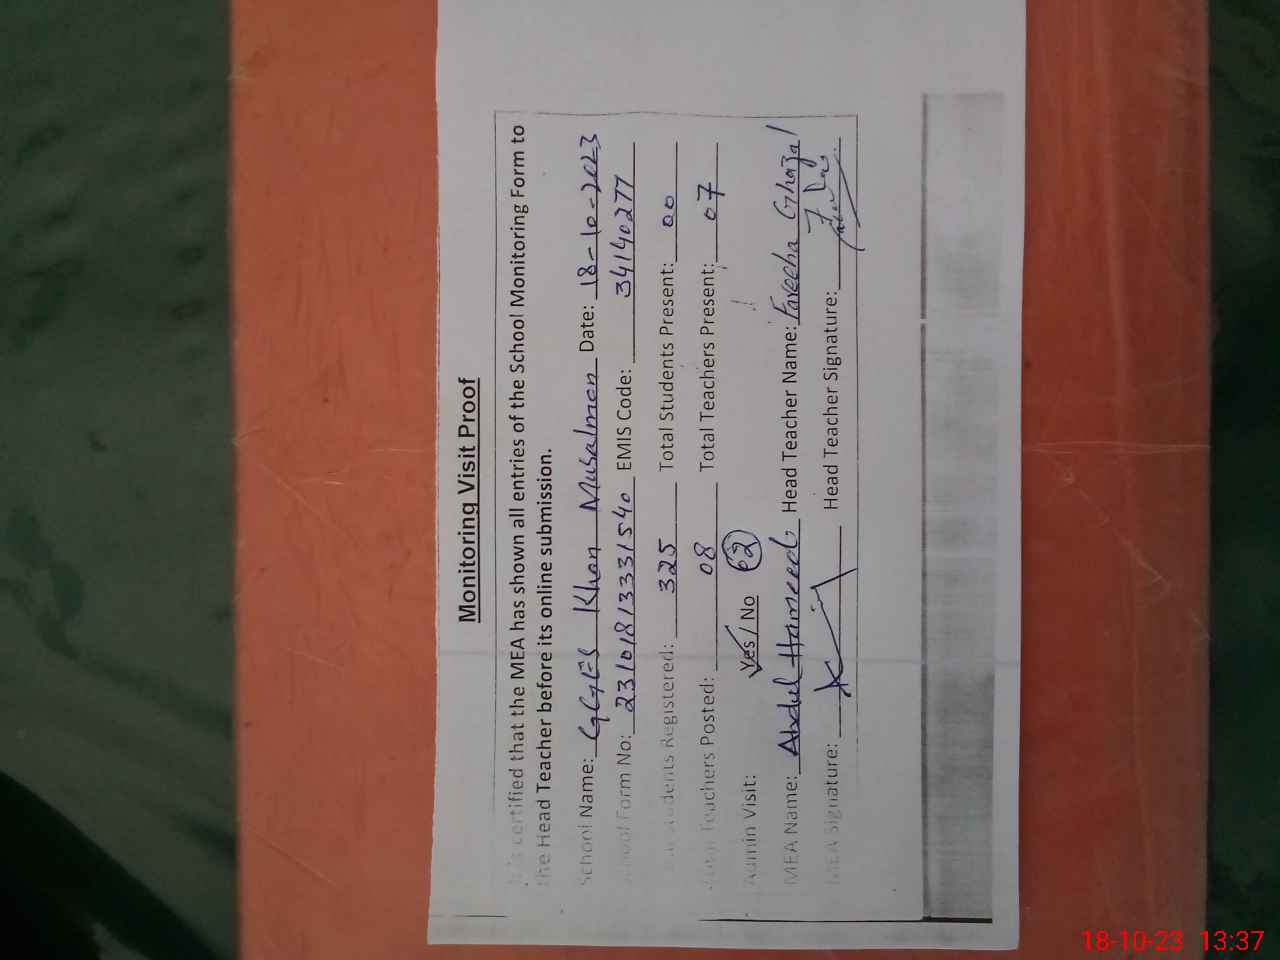 Monitoring Visit Proof
It is certified that the MEA has shown all entries of the School Monitoring Form to
the Head Teacher before its online submission.
School Name: GGES Khan Musalman Date: 18-10-2023
School Form No: 231018133331540 EMIS Code: 34140277
Students Registered: 325 Total Students Present: 00
Total Teachers Posted: 08 Total Teachers Present: 07
Admin Visit: Yes / No 02
MEA Name: Abdul Hameed Head Teacher Name: Fareeha Ghazal
MEA Signature: Head Teacher Signature:
18-10-23 13:37